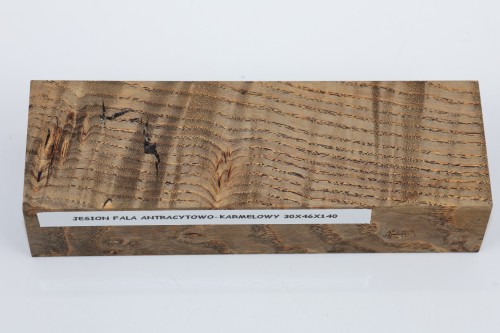 JESION FALA ANTRACYTOWO-KARMELOWY 30X46X140